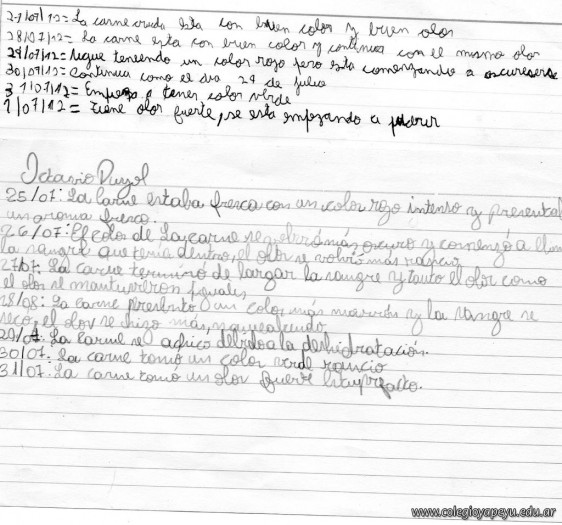 27/07/12= La carne cruda esta con buen color y buen olor
28/07/12= La carne esta con buen color y continua con el mismo olor
29/07/12= Sigue teniendo un color rojo pero esta comenzando a oscurecerse
30/07/12= Continua como el dia 29 de julio
31/07/12= Empezo a tener color verde
1/07/12= Tiene olor fuerte, se esta empezando a pudrir
Octavio Puyol
25/07: La carne estaba fresca con un color rojo intenso y presentaba
un aroma fresco.
26/07: El color de la carne se volvió más oscuro y comenzó a
la sangre que tenía dentro, el olor se volvió más rancio.
27/07: La carne terminó de largar la sangre y tanto el olor como
el olor se mantuvieron iguales,
28/08: La carne presentó un color más marrón y la sangre se
seco, el olor se hizo más,
29/07. La carne se achico debido a la deshidratación.
30/07. La carne tomó un color verde rancio
31/07. La carne tomó un olor fuerte
www.colegioyapeyu.edu.ar